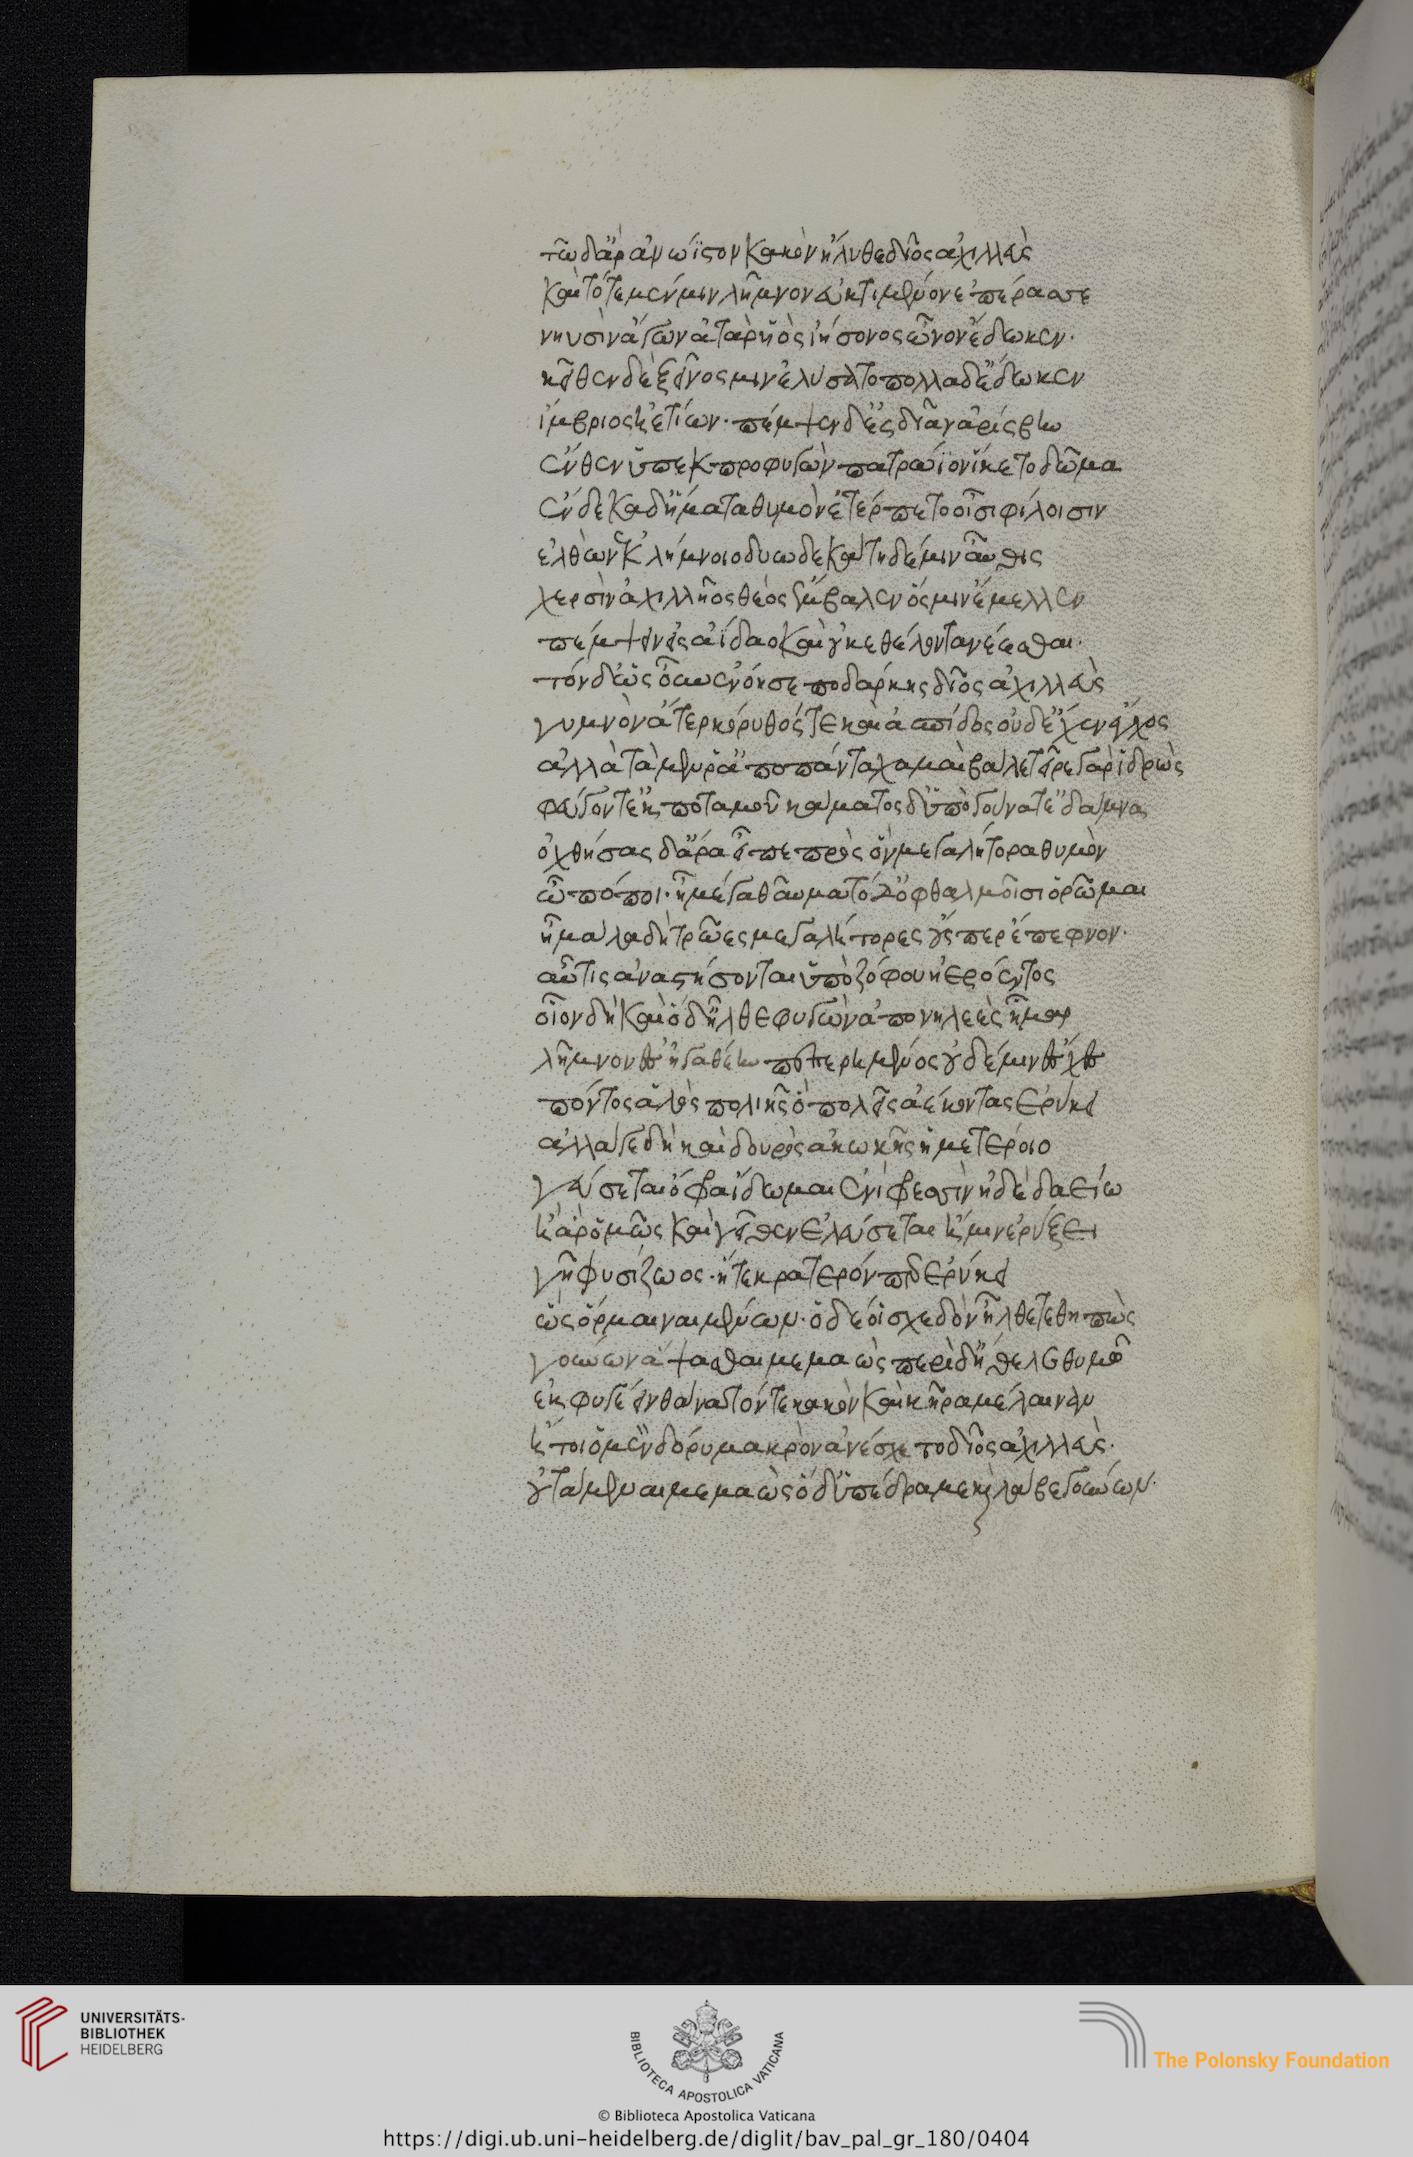 τῶ δ' ἄρ ἀνώϊστον κακὸν ἤλυθε δῖος ἀχιλλεὺς
καὶ τότε μέν μιν λῆμνον ἐϋκτιμένην ἐπέρασσε
νηυσὶν ἄγων ἀτὰρ υἱὸς ἰήσονος ὦνον ἔδωκεν·
κεῖθεν δὲ ξεῖνος μιν ἐλύσατο πολλὰ δ' ἔδωκεν
ἴμβριος ἠετίων· πέμψεν δ' ἐς δῖαν ἀρίσβην
ἔνθεν ὑπεκπροφυγὼν πατρώϊον ἵκετο δῶμα
ἕνδεκα δ' ἤματα θυμὸν ἐτέρπετο οἷσι φίλοισιν
ἐλθὼν ἐκ λήμνοιο δυωδεκάτη δέ μιν αὖθις
χερσὶν ἀχιλλῆος θεὸς ἔμβαλεν ὅς μιν ἔμελλεν
πέμψειν εἰς ἀΐδαο καὶ οὐκ ἐθέλοντα νέεσθαι·
τὸν δ' ὡς οὖν ἐνόησε ποδάρκης δῖος ἀχιλλεὺς
γυμνὸν ἄτερ κόρυθός τε καὶ ἀσπίδος οὐδ' ἔχεν ἔγχος
ἀλλὰ τὰ μέν ῥ' ἄπο πάντα χαμαὶ βάλε τεῖρε γὰρ ἱδρὼς
φεύγοντ' ἐκ ποταμοῦ κάματος δ' ὑπὸ γούνατ' ἐδάμνα
ὀχθήσας δ' ἄρα εἶπε πρὸς ὃν μεγαλήτορα θυμὸν
ὢ πόποι· ἦ μέγα θαῦμα τόδ' ὀφθαλμοῖσιν ὁρῶμαι
ἦ μάλα δὴ τρῶες μεγαλήτορες οὕς περ ἔπεφνον·
αὖτις ἀναστήσονται ὑπὸ ζόφου ἠερόεντος
οἷον δὴ καὶ ὅδ' ἦλθε φυγὼν ἄπο νηλεὲς ἦμαρ
λῆμνον ἐς ἠγαθέην πεπερημένος οὐδέ μιν ἔσχε
πόντος ἁλὸς πολιῆς ὃ πολεῖς ἀέκοντας ἐρύκει
ἀλλ' ἄγε δὴ καὶ δουρὸς ἀκωκῆς ἡμετέροιο
γεύσεται ὄφρα ἴδωμαι ἐνὶ φρεσὶν ἠδὲ δαείω
ἢ ἄρ ὁμῶς καὶ κεῖθεν ἐλεύσεται ἤ μιν ἐρύξει
γῆ φυσίζωος· ἥ τε κρατερόν περ ἐρύκει
ὣς ὅρμαινε μένων· ὃ δέ οἱ σχεδὸν ἦλθε τεθηπὼς
γούνων ἅψασθαι μεμαὼς περὶ δ' ἤθελε θυμῷ
ἐκφυγέειν θάνατόν τε κακὸν καὶ κῆρα μέλαιναν
ἤτοι ὃ μὲν δόρυ μακρὸν ἀνέσχετο δῖος ἀχιλλεὺς·
οὐτάμεναι μεμαὼς ὃ δ' ὑπέδραμε καὶ λάβε γούνων·
UNIVERSITÄTS-
BIBLIOTHEK
HEIDELBERG
BIBLIOTECA APOSTOLICA VATICANA
The Polonsky Foundation
© Biblioteca Apostolica Vaticana
https://digi.ub.uni-heidelberg.de/diglit/bav_pal_gr_180/0404